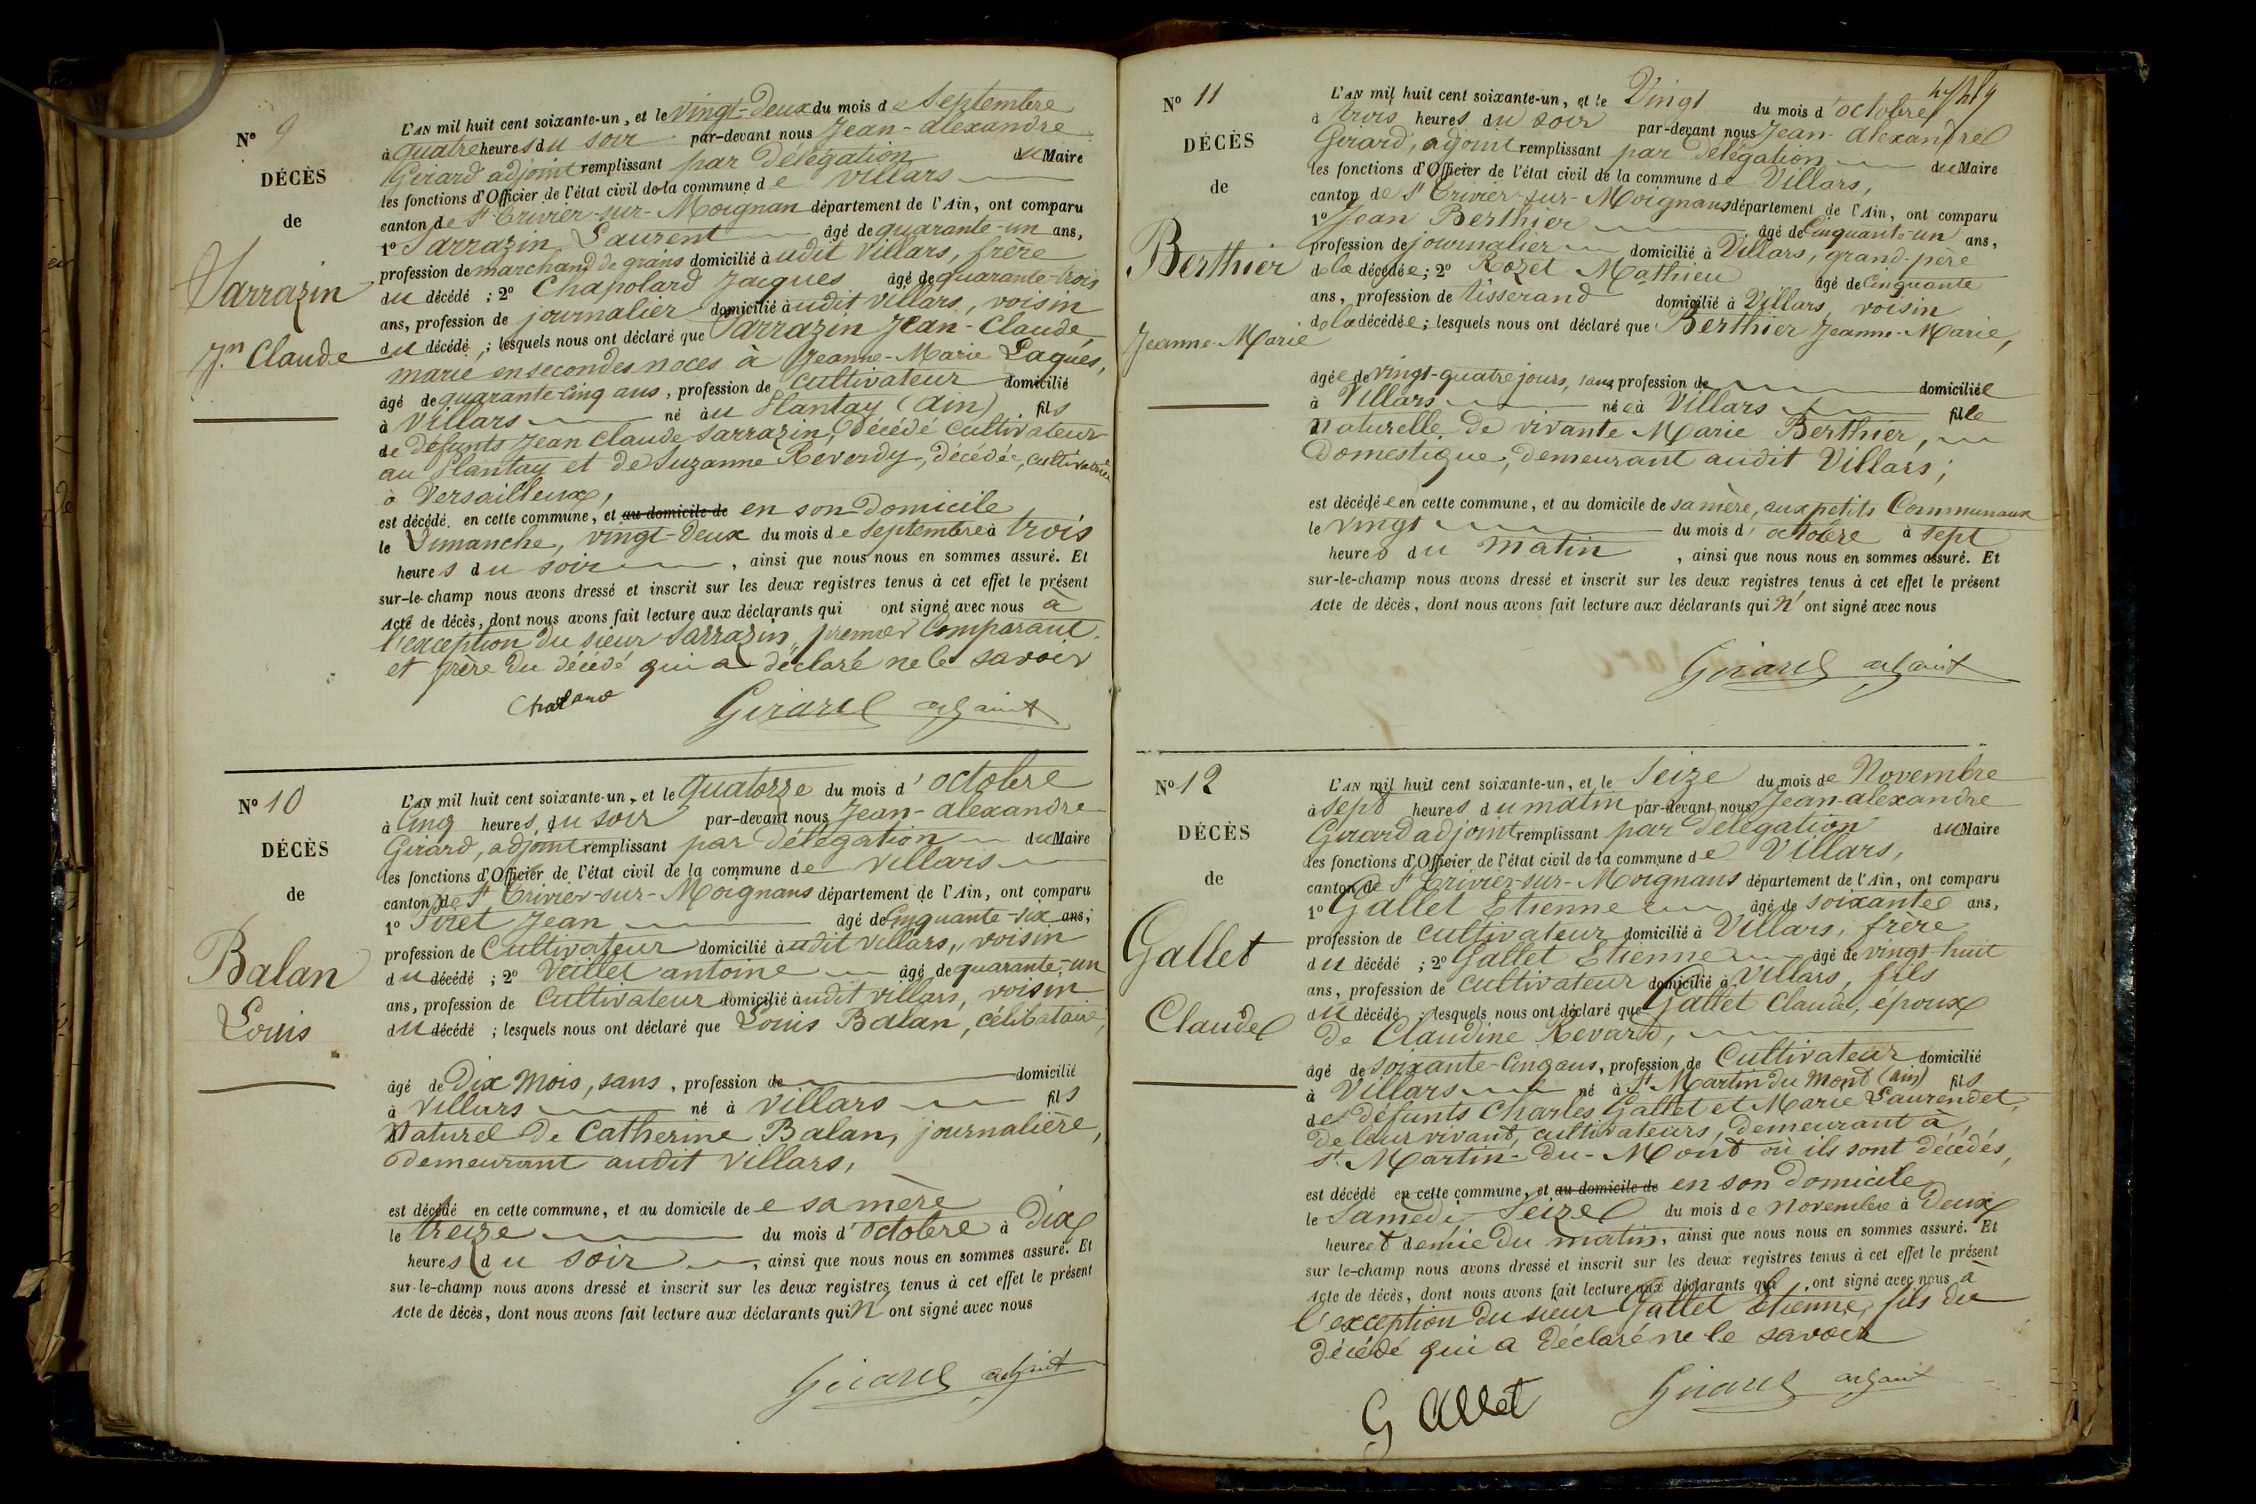 N° 9
DÉCÈS
de
Sarrazin
Jn. Claude
L'AN mil huit cent soixante-un, et le vingt-deux du mois de Septembre
à quatre heures du soir par-devant nous Jean-alexandre
Girard adjoint remplissant par délégation du Maire
les fonctions d'Officier de l'état civil de la commune de Villars
canton de St Trivier-sur-Moignan département de l'Ain, ont comparu
1° Sarrazin Laurent âgé de quarante-un ans,
profession de marchand de grains domicilié audit Villars, frère
du décédé ; 2° Chapolard Jacques âgé de quarante-trois
ans, profession de journalier domicilié audit Villars, voisin
du décédé ; lesquels nous ont déclaré que Sarrazin Jean-Claude,
marié en secondes noces à Jeanne-Marie Laques,
âgé de quarante-cinq ans, profession de cultivateur domicilié
à Villars né au Plantay (Ain) fils
de défunts Jean Claude Sarrazin, décédé cultivateur
au Plantay et de Suzanne Reverdy, décédée, cultivatrice
à Versailleux,
est décédé en cette commune, et au domicile de en son domicile
le Dimanche, vingt-deux du mois de septembre à trois
heures du soir, ainsi que nous nous en sommes assuré. Et
sur-le-champ nous avons dressé et inscrit sur les deux registres tenus à cet effet le présent
Acte de décès, dont nous avons fait lecture aux déclarants qui ont signé avec nous à
l'exception du sieur Sarrazin, premier Comparant
et frère du décédé qui a déclaré ne le savoir
Girard adjoint
N° 10
DÉCÈS
de
Balan
Louis
L'AN mil huit cent soixante-un, et le quatorze du mois d'octobre
à cinq heures du soir par-devant nous Jean-alexandre
Girard, adjoint remplissant par délégation du Maire
les fonctions d'Officier de l'état civil de la commune de Villars
canton de St Trivier-sur-Moignans département de l'Ain, ont comparu
1° Piret Jean âgé de Cinquante-six ans,
profession de Cultivateur domicilié audit Villars, voisin
du décédé ; 2° Veillet antoine âgé de quarante-un
ans, profession de Cultivateur domicilié audit Villars, voisin
du décédé ; lesquels nous ont déclaré que Louis Balan, célibataire,
âgé de Dix mois, sans, profession de domicilié
à Villars né à Villars fils
Naturel de Catherine Balan, journalière,
demeurant audit Villars,
est décédé en cette commune, et au domicile de e sa mère
le treize du mois d'octobre à Dix
heures du soir, ainsi que nous nous en sommes assuré. Et
sur-le-champ nous avons dressé et inscrit sur les deux registres tenus à cet effet le présent
Acte de décès, dont nous avons fait lecture aux déclarants qui n'ont signé avec nous
Girard adjoint
N° 11
DÉCÈS
de
Berthier
Jeanne-Marie
L'AN mil huit cent soixante-un, et le Vingt du mois d'octobre
à trois heures du soir par-devant nous Jean-alexandre
Girard, adjoint remplissant par délégation du Maire
les fonctions d'Officier de l'état civil de la commune de Villars,
canton de St Trivier-sur-Moignans département de l'Ain, ont comparu
1° Jean Berthier âgé de Cinquante-un ans,
profession de journalier domicilié à Villars, grand-père
de la décédée ; 2° Rozet Mathieu âgé de Cinquante
ans, profession de tisserand domicilié à Villars, voisin
de la décédée ; lesquels nous ont déclaré que Berthier Jeanne-Marie,
âgée de vingt-quatre jours, sans profession de domiciliée
à Villars née à Villars fille
naturelle de vivante Marie Berthier,
domestique, demeurant audit Villars ;
est décédée en cette commune, et au domicile de sa mère, aux petits Communaux
le vingt du mois d'octobre à sept
heures du matin, ainsi que nous nous en sommes assuré. Et
sur-le-champ nous avons dressé et inscrit sur les deux registres tenus à cet effet le présent
Acte de décès, dont nous avons fait lecture aux déclarants qui n'ont signé avec nous
Girard adjoint
N° 12
DÉCÈS
de
Gallet
Claude
L'AN mil huit cent soixante-un, et le Seize du mois de Novembre
à sept heures du matin par-devant nous Jean-alexandre
Girard adjoint remplissant par délégation du Maire
les fonctions d'Officier de l'état civil de la commune de Villars,
canton de St Trivier-sur-Moignans département de l'Ain, ont comparu
1° Gallet Etienne âgé de soixante ans,
profession de cultivateur domicilié à Villars, frère
du décédé ; 2° Gallet Etienne âgé de vingt-huit
ans, profession de cultivateur domicilié à Villars, fils
du décédé ; lesquels nous ont déclaré que Gallet Claude, époux
de Claudine Revard,
âgé de soixante-cinq ans, profession de Cultivateur domicilié
à Villars né à St Martin du Mont (ain) fils
de défunts Charles Gallet et Marie Laurendet,
de leur vivant, cultivateurs, demeurant à
St Martin-du-Mont où ils sont décédés,
est décédé en cette commune, et au domicile de en son domicile
le Samedi, Seize du mois de novembre à Deux
heures et demie du matin, ainsi que nous nous en sommes assuré. Et
sur le-champ nous avons dressé et inscrit sur les deux registres tenus à cet effet le présent
Acte de décès, dont nous avons fait lecture aux déclarants qui ont signé avec nous à
l'exception du sieur Gallet Etienne, fils du
décédé qui a déclaré ne le savoir
G Allet
Girard adjoint